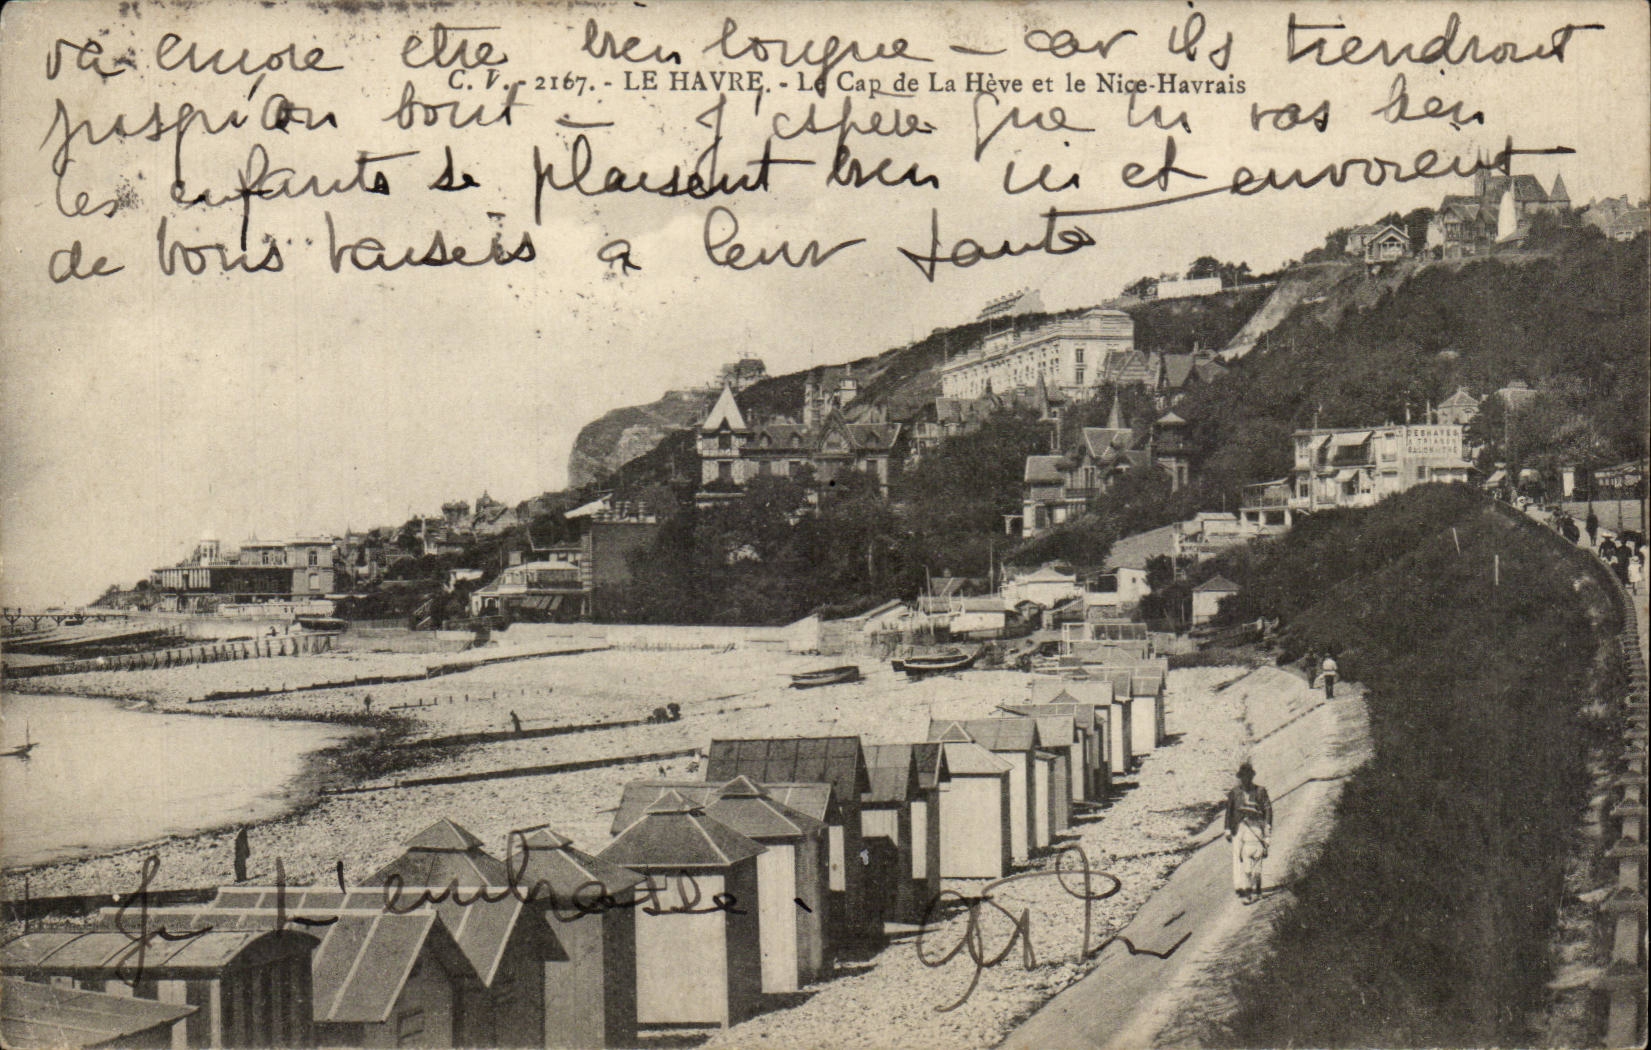 va encore etre bien longue – car ils tiendront
C. V. - 2167. - LE HAVRE. - Le Cap de La Hève et le Nice-Havrais
jusqu'au bout – J'espère que tu vas bien
les enfants se plaisent bien ici et envoient
de bons baisers a leur tante
DESHAYES
SALON de THE
Je t'embrasse.